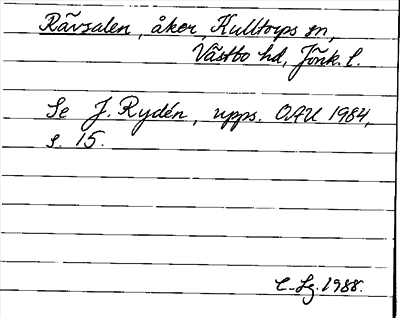 Rävsalen, åker, Kulltorps sn,
Västbo hd, Jönk. l.
Se J. Rydén, upps. OAU 1984,
s. 15.
C-Lg. 1988.